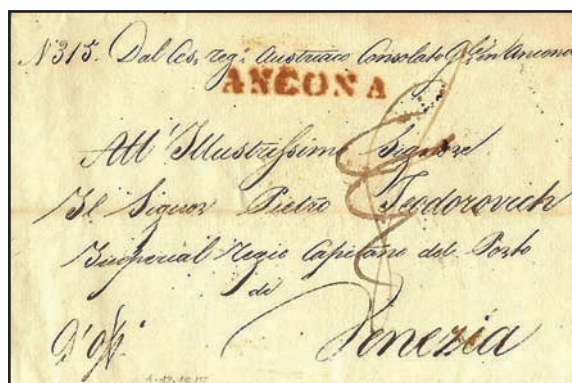 N 315. Dal Ces. Regº Austriaco Consolato Gle in Ancona
ANCONA
All' Illustrissimo Signore
Il Signor Pietro Teodorovich
Imperial Regio Capitano del Porto
di
Venezia